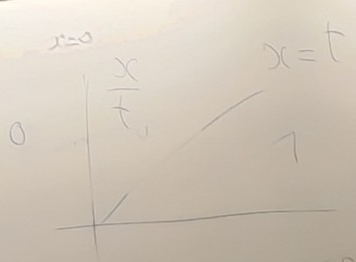 x=0
x
t
x=t
0
1